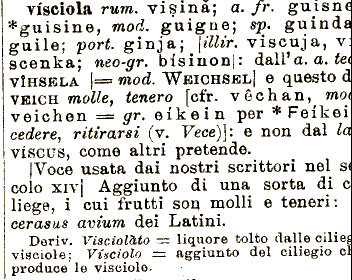 vísciola rum. vișină; a. fr. guisne
*guisine, mod. guigne; sp. guinda
guile; port. ginja; [illir. viscuja, vi
scenka; neo-gr. bísinon]: dall'a. a. ted
VÎHSELA [= mod. WEICHSEL] e questo d
VEICH molle, tenero [cfr. vêchan, mod
veichen = gr. eikein per *Feikei
cedere, ritirarsi (v. Vece)]: e non dal la
VÍSCUS, come altri pretende.
[Voce usata dai nostri scrittori nel se
colo XIV] Aggiunto di una sorta di c
liege, i cui frutti son molli e teneri:
cerasus avium dei Latini.
Deriv. Visciolàto = liquore tolto dalle cilieg
visciole; Vísciolo = aggiunto del ciliegio ch
produce le visciole.